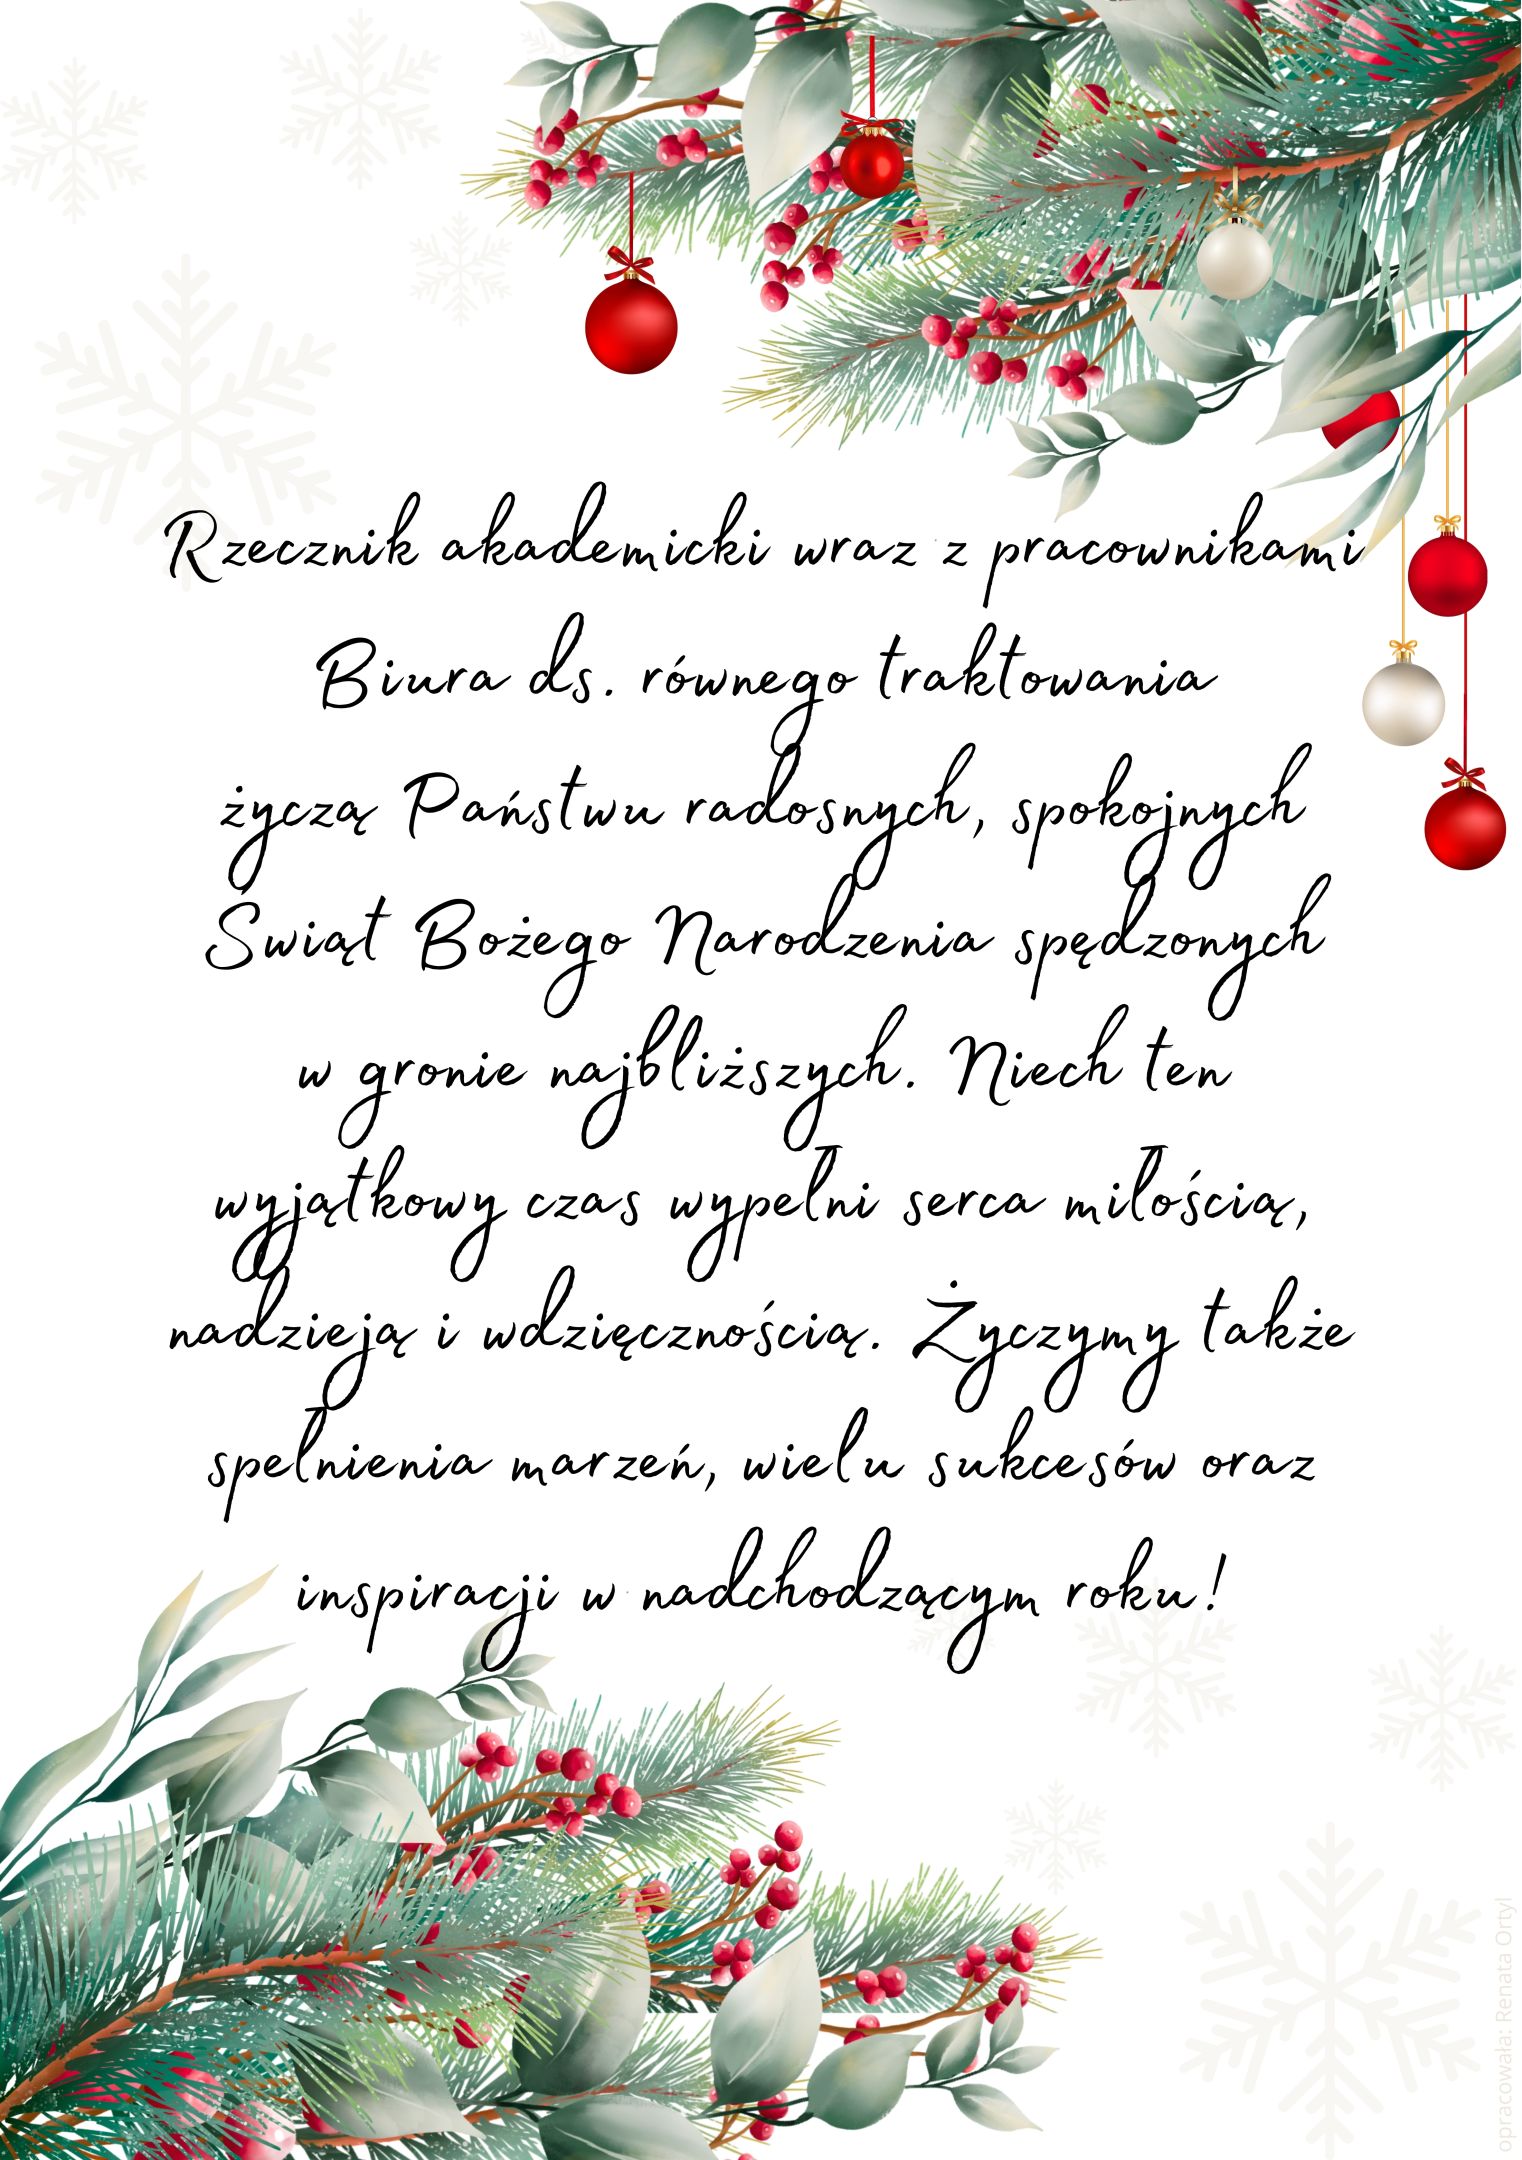 Rzecznik akademicki wraz z pracownikami
Biura ds. równego traktowania
życzą Państwu radosnych, spokojnych
Świąt Bożego Narodzenia spędzonych
w gronie najbliższych. Niech ten
wyjątkowy czas wypełni serca miłością,
nadzieją i wdzięcznością. Życzymy także
spełnienia marzeń, wielu sukcesów oraz
inspiracji w nadchodzącym roku!
opracowała: Renata Ortyl